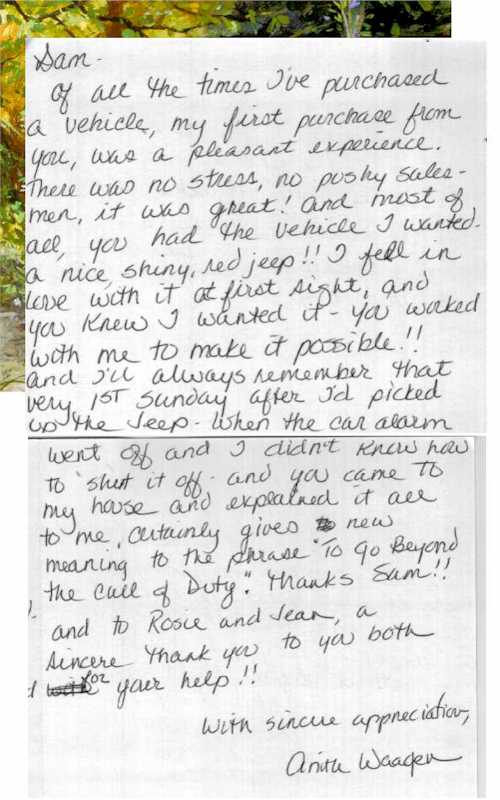 Sam-
Of all the times I've purchased
a vehicle, my first purchase from
you, was a pleasant experience.
There was no stress, no pushy sales-
men, it was great! And most of
all, you had the vehicle I wanted-
a nice, shiny, red jeep!! I fell in
love with it at first sight, and
you knew I wanted it - you worked
with me to make it possible!!
and I'll always remember that
very 1ST Sunday after I'd picked
up the Jeep - when the car alarm
went off and I didn't know how
to shut it off - and you came to
my house and explained it all
to me, certainly gives new
meaning to the phrase "To Go Beyond
the Call of Duty". Thanks Sam!!
and to Rosie and Jean, a
sincere thank you to you both
for your help!!
With sincere appreciation,
Anita